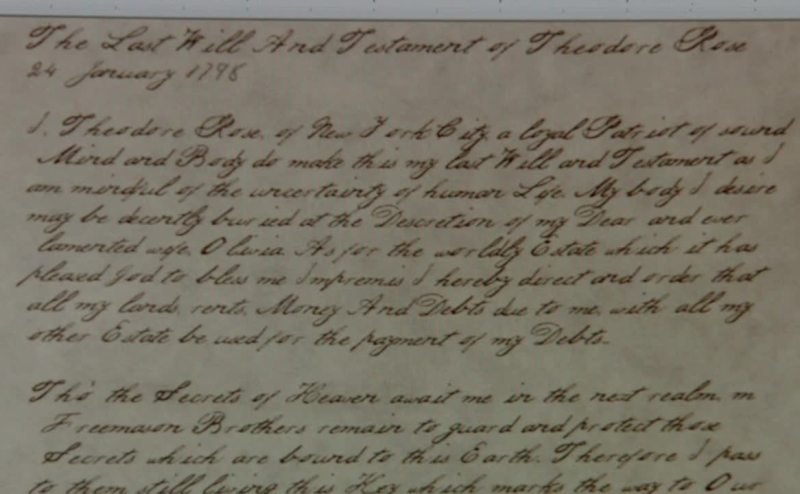 The Last Will And Testament of Theodore Rose
24 January 1798
I, Theodore Rose, of New York City, a loyal Patriot of sound
Mind and Body do make this my last Will and Testament as I
am mindful of the uncertainty of human Life. My body I desire
may be decently buried at the Descretion of my Dear and ever
lamented wife, Olivia. As for the worldly Estate which it has
pleased God to bless me Impremis I hereby direct and order that
all my lands, rents, Money And Debts due to me, with all my
other Estate be used for the payment of my Debts.
Tho' the Secrets of Heaven await me in the next realm, m
Freemason Brothers remain to guard and protect those
Secrets which are bound to this Earth. Therefore I pass
to them still living this Key which marks the way to Our